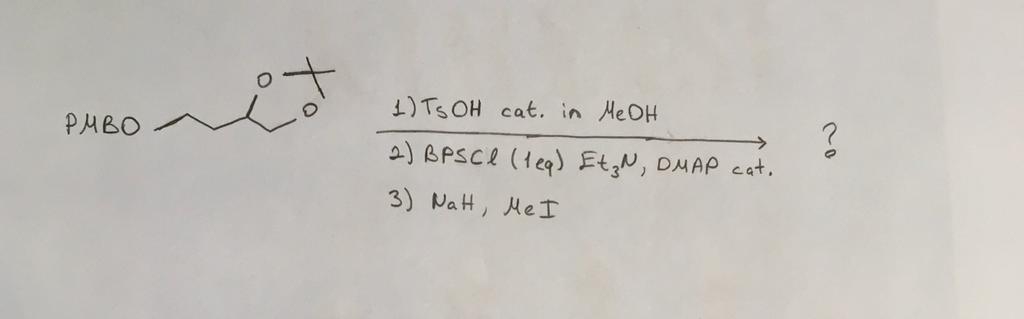 O
O
PMBO
1) TsOH cat. in MeOH
2) BPSCl (1eq) Et₃N, DMAP cat.
3) NaH, MeI
?